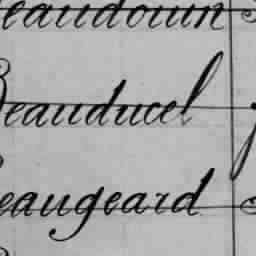 Beaudouin
Beauducel
Beaugeard